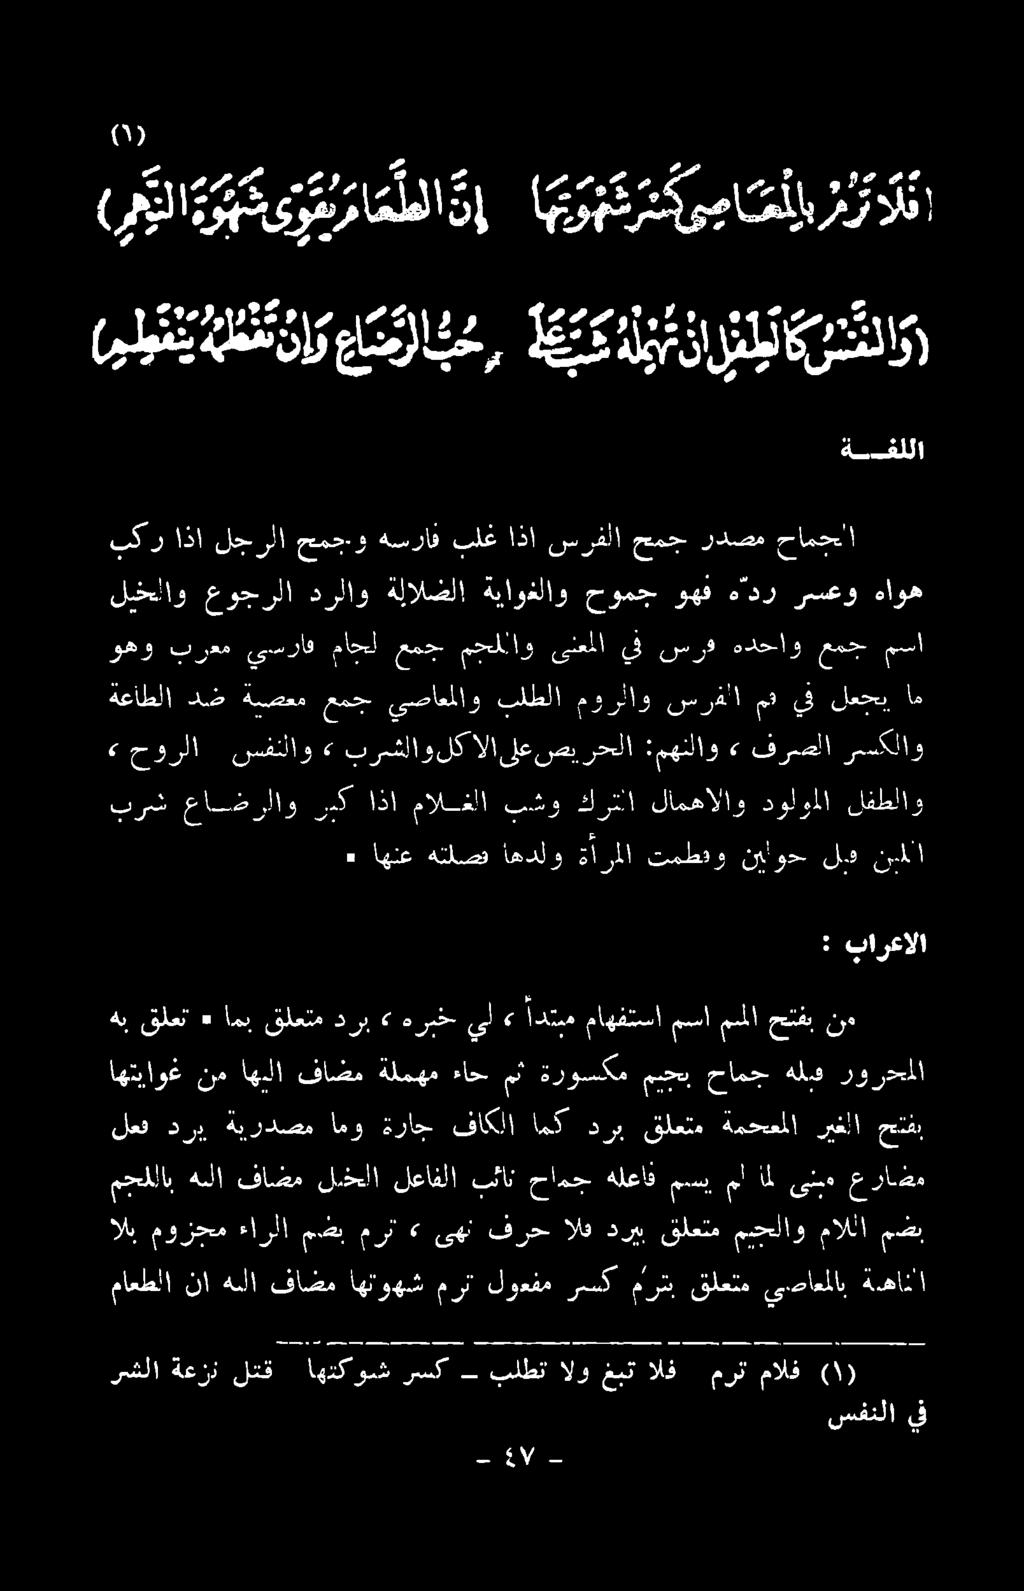 (١)
(فَلَا تَرُمْ بِالْمَعَاصِي كَسْرَ شَهْوَتِهَا إِنَّ الطَّعَامَ يُقَوِّي شَهْوَةَ النَّهِمِ)
(وَالنَّفْسُ كَالطِّفْلِ اِنْ تُهْمِلْهُ شَبَّ عَلَى حُبِّ الرَّضَاعِ وَاِنْ تَفْطِمْهُ يَنْفَطِمِ)
اللغـــة
الجماح مصدر جمح الفرس اذا غلب فارسه وجمح الرجل اذا ركب
هواه وعسر ردّه فهو جموح والغواية الضلالة والرد الرجوع والخيل
اسم جمع واحده فرس في المعنى واللجم جمع لجام فارسي معرب وهو
ما يجعل في فم الفرس والروم الطلب والمعاصي جمع معصية ضد الطاعة
والكسر الصرف ، والنهم: الحريص على الاكل والشرب ، والنفس الروح ،
والطفل المولود والاهمال الترك وشب الغـلام اذا كبر والرضـاع شرب
اللبن قبل حولين وفطمت المرأة ولدها فصلته عنها .
الاعراب :
من بفتح الميم اسم استفهام مبتدأ ، لي خبره ، برد متعلق بما . تعلق به
المجرور قبله جماح بجيم مكسورة ثم حاء مهملة مضاف اليها من غوايتها
بفتح الغين المعجمة متعلق برد كما الكاف جارة وما مصدرية يرد فعل
مضارع مبني لما لم يسم فاعله جماح نائب الفاعل الخيل مضاف اليه باللجم
بضم اللام والجيم متعلق بيرد فلا حرف نهى ، ترم بضم الراء مجزوم بلا
الناهية بالمعاصي متعلق بترُم كسر مفعول ترم شهوتها مضاف اليه ان الطعام
(١) فلام ترم فلا تبغ ولا تطلب _ كسر شوكتها قتل نزعة الشر
في النفس
- ٤٧ -